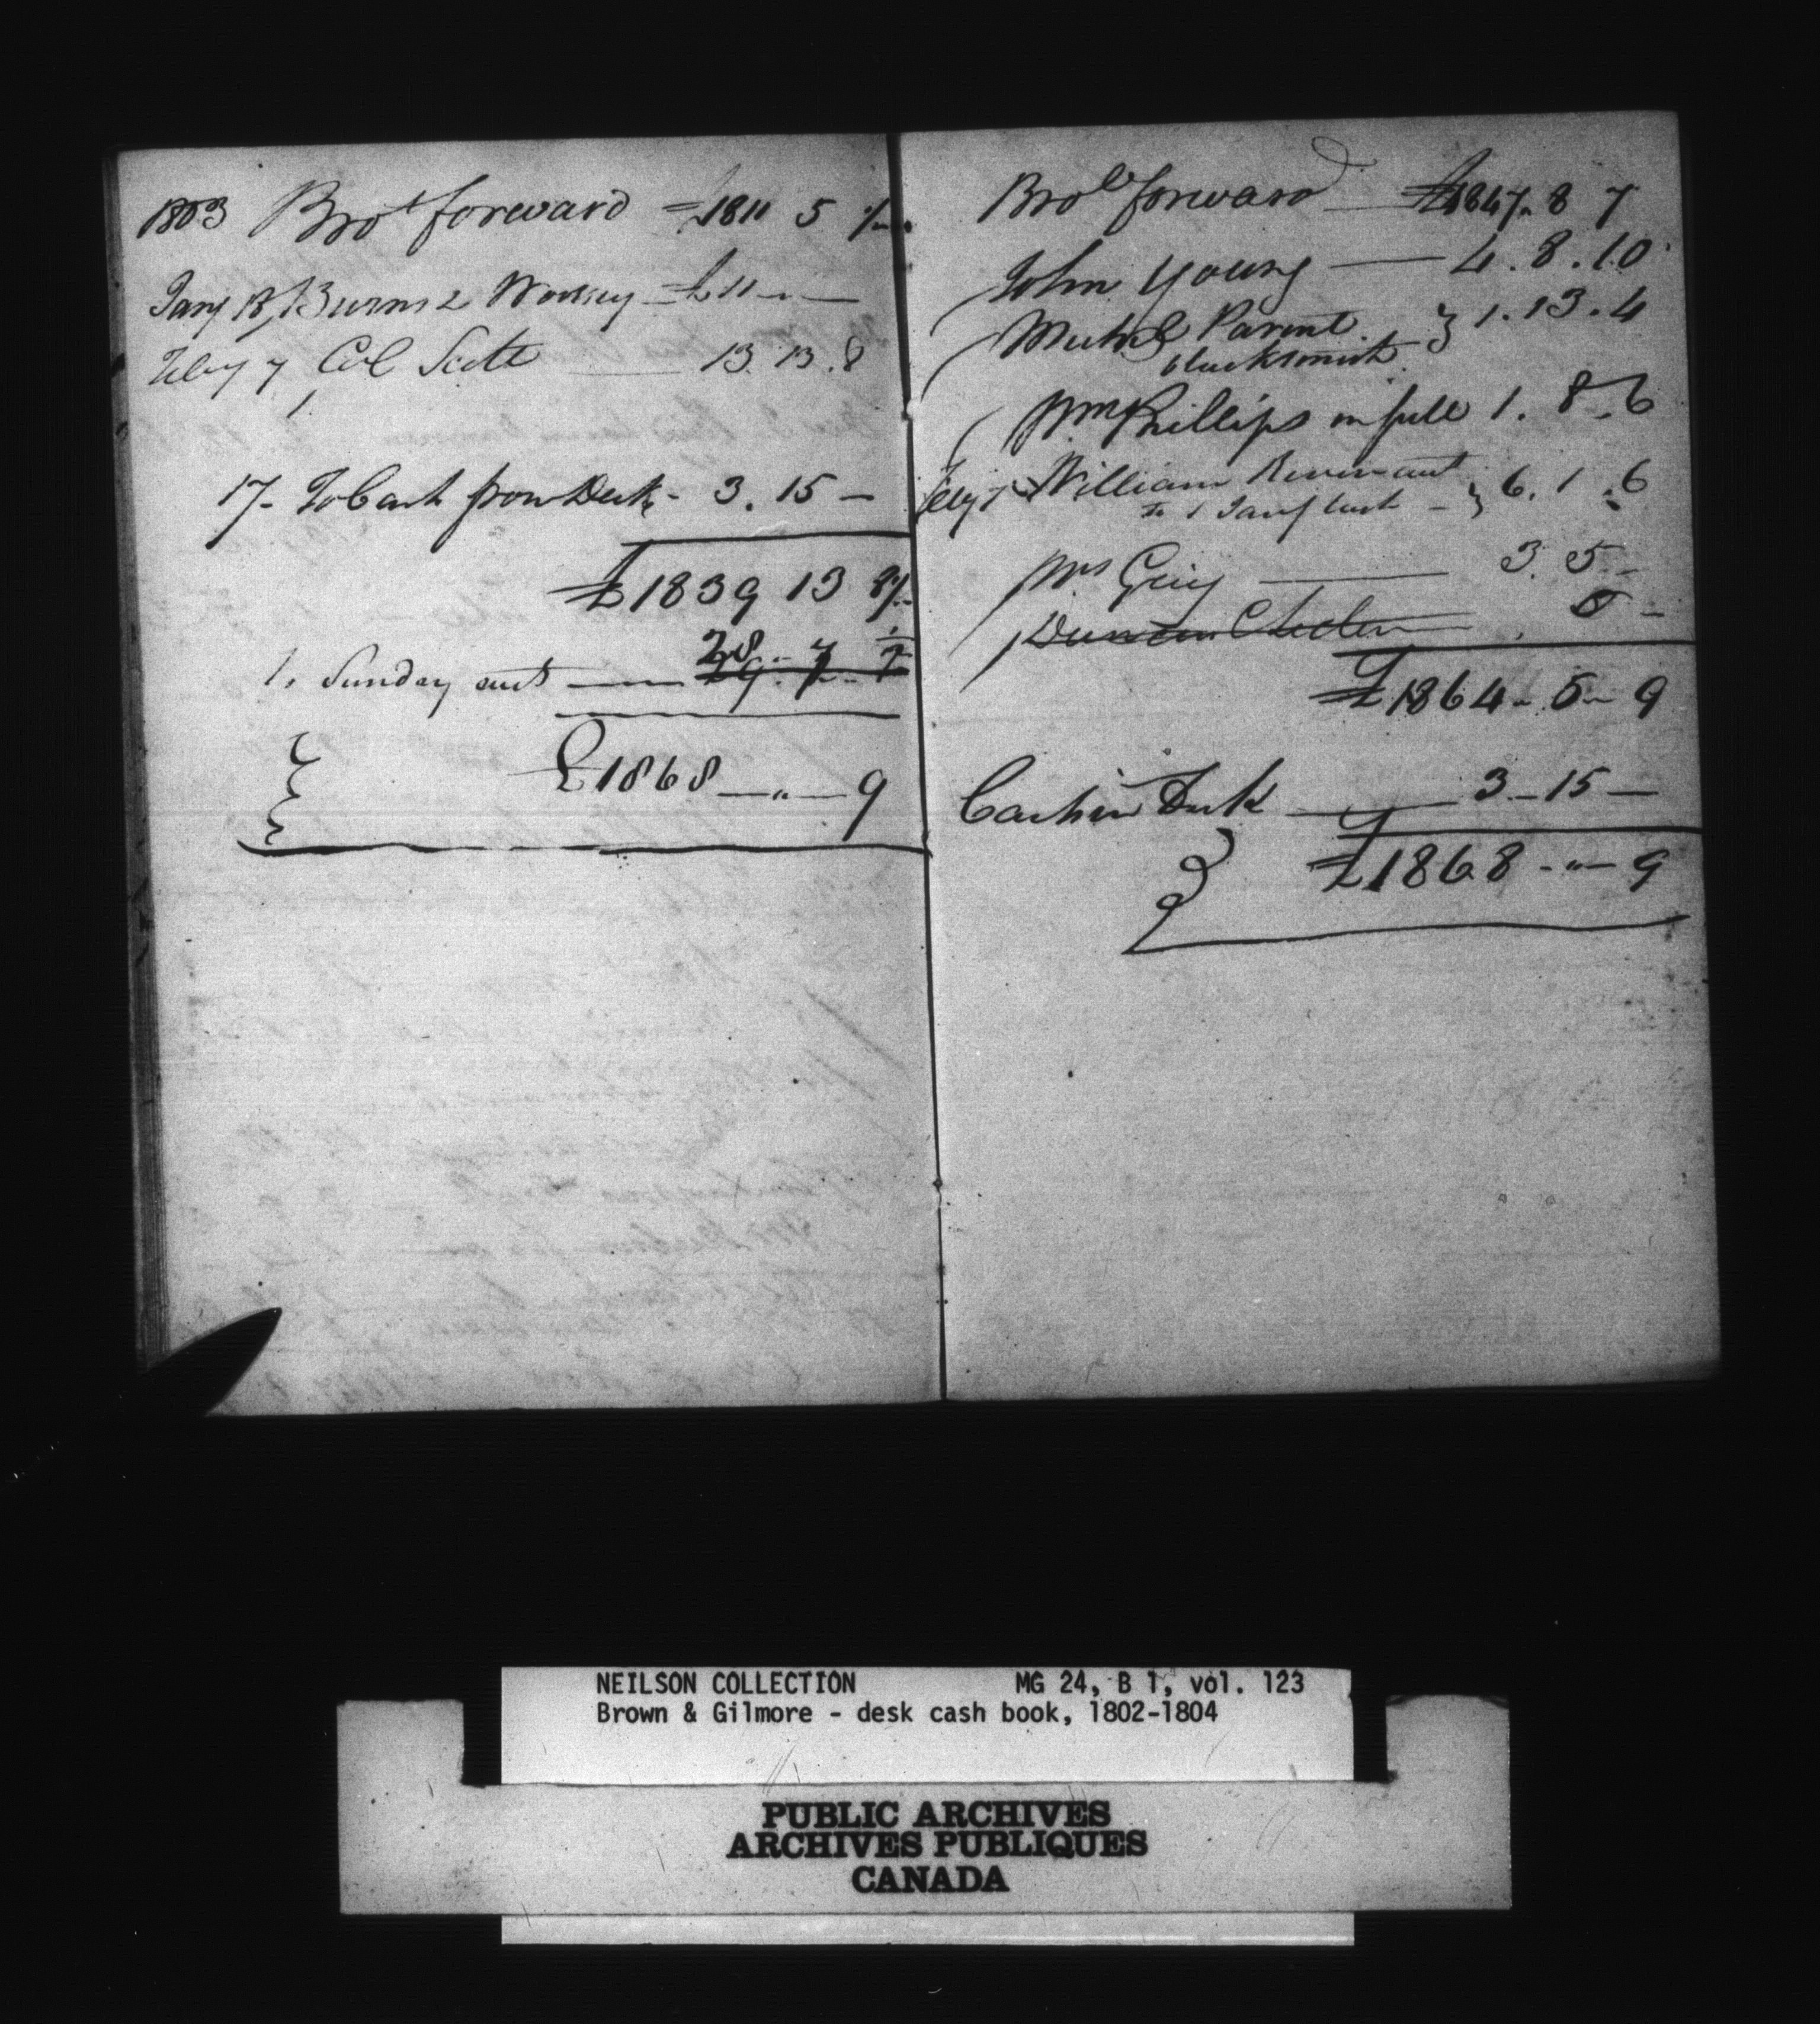 1803 Bro.t forward £1811 5
Jany 18, Burns & Woolsey £11 " —
Feby 7 Col Scott 13. 13. 8
17- To Cash from Desk - 3. 15 —
£1839 13 8
28.. 7
1. Sunday 29. 7
£1868 — " — 9
Bro.t forward £1847. 8 7
John Young 4. 8. 10
Michel Parent } 1. 13. 4
blacksmith
Wm Phillips in full 1. 8. 6
Feby William } 6. 1. 6
to 1 Jany last
Mrs Grey 3. 5 -
Duncan 5 -
£1864 - 5 - 9
Cash in Desk 3 - 15 —
£1868 - " - 9
NEILSON COLLECTION MG 24, B 1, vol. 123
Brown & Gilmore - desk cash book, 1802-1804
PUBLIC ARCHIVES
ARCHIVES PUBLIQUES
CANADA